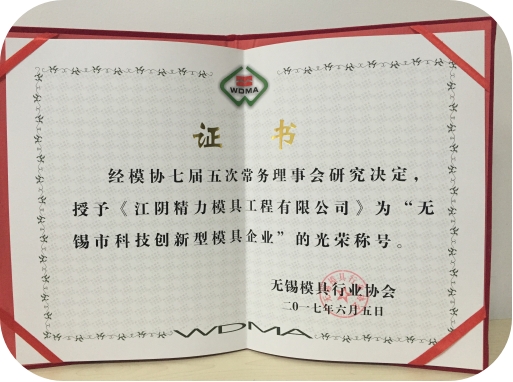 WDMA
证 书
经模协七届五次常务理事会研究决定，
授予《江阴精力模具工程有限公司》为“无
锡市科技创新型模具企业”的光荣称号。
无锡模具行业协会
二〇一七年六月五日
WDMA